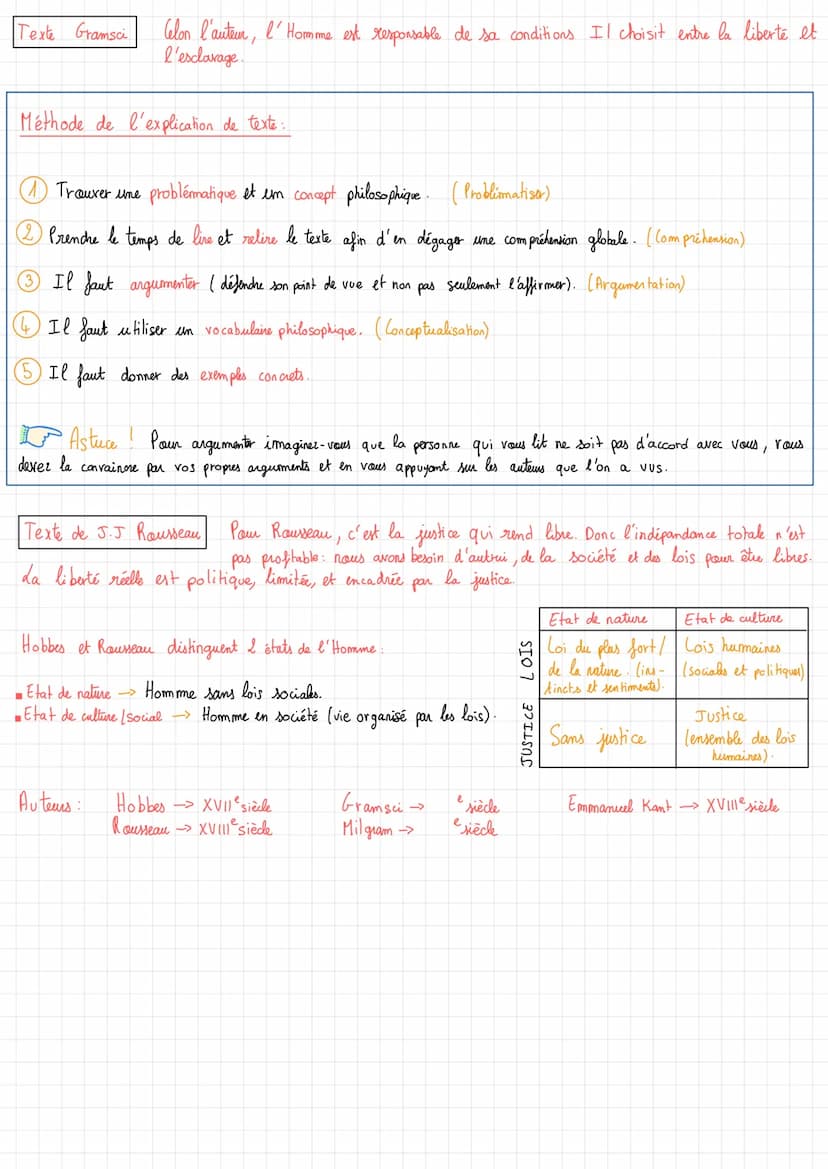 Texte Gramsci
Celon l'auteur, l'Homme est responsable de sa conditions Il choisit entre la liberté et
l'esclavage.
Méthode de l'explication de texte:
1 Trouver une problématique et un concept philosophique. (Problématiser)
2 Prendre le temps de lire et relire le texte afin d'en dégager une compréhension globale. (Compréhension)
3 Il faut argumenter (défendre son point de vue et non pas seulement l'affirmer). (Argumentation)
4 Il faut utiliser un vocabulaire philosophique. (Conceptualisation)
5 Il faut donner des exemples concrets.
Astuce! Pour argumenter imaginez-vous que la personne qui vous lit ne soit pas d'accord avec vous, vous
devez la convaincre par vos propres arguments et en vous appuyant sur les auteurs que l'on a vus.
Texte de J.J Rousseau
Pour Rousseau, c'est la justice qui rend libre. Donc l'indépandance totale n'est
pas profitable: nous avons besoin d'autrui, de la société et des lois pour être libres.
La liberté réelle est politique, limitée, et encadrée par la justice.
Hobbes et Rousseau distinguent 2 états de l'Homme:
Etat de nature → Homme sans lois sociales.
Etat de culture/social → Homme en société (vie organisé par les lois).
Etat de nature
Etat de culture
LOIS
Loi du plus fort/
de la nature. (ins-
tincts et sentiments).
Lois humaines
(sociales et politiques)
JUSTICE
Sans justice
Justice
(ensemble des lois
humaines).
Auteurs: Hobbes → XVIIe siècle Gramsci → e siècle Emmanuel Kant → XVIIIe siècle
Rousseau → XVIIIe siècle Milgram → e siècle